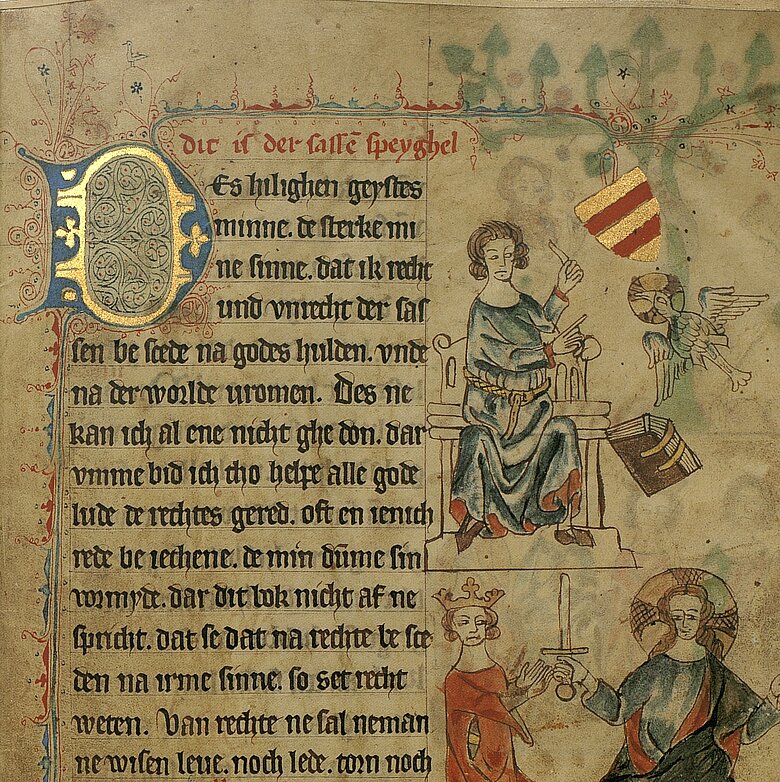 dit is der sassē speyghel
DEs hilighen geystes
minne. de sterke mi
ne sinne. dat ik recht
vnd vnrecht der sas
sen be scede na godes hulden. vnde
na der worlde vromen. Des ne
kan ich al ene nicht ghe don. dar
vmme bid ich tho helpe alle gode
lude de rechtes gered. oft en ienich
rede be ieghene. de min dūme sin
vormyde. dar dit bok nicht af ne
spricht. dat se dat na rechte be sce
den na irme sinne. so set recht
weten. Van rechte ne sal neman
ne wisen leue. noch lede. torn noch